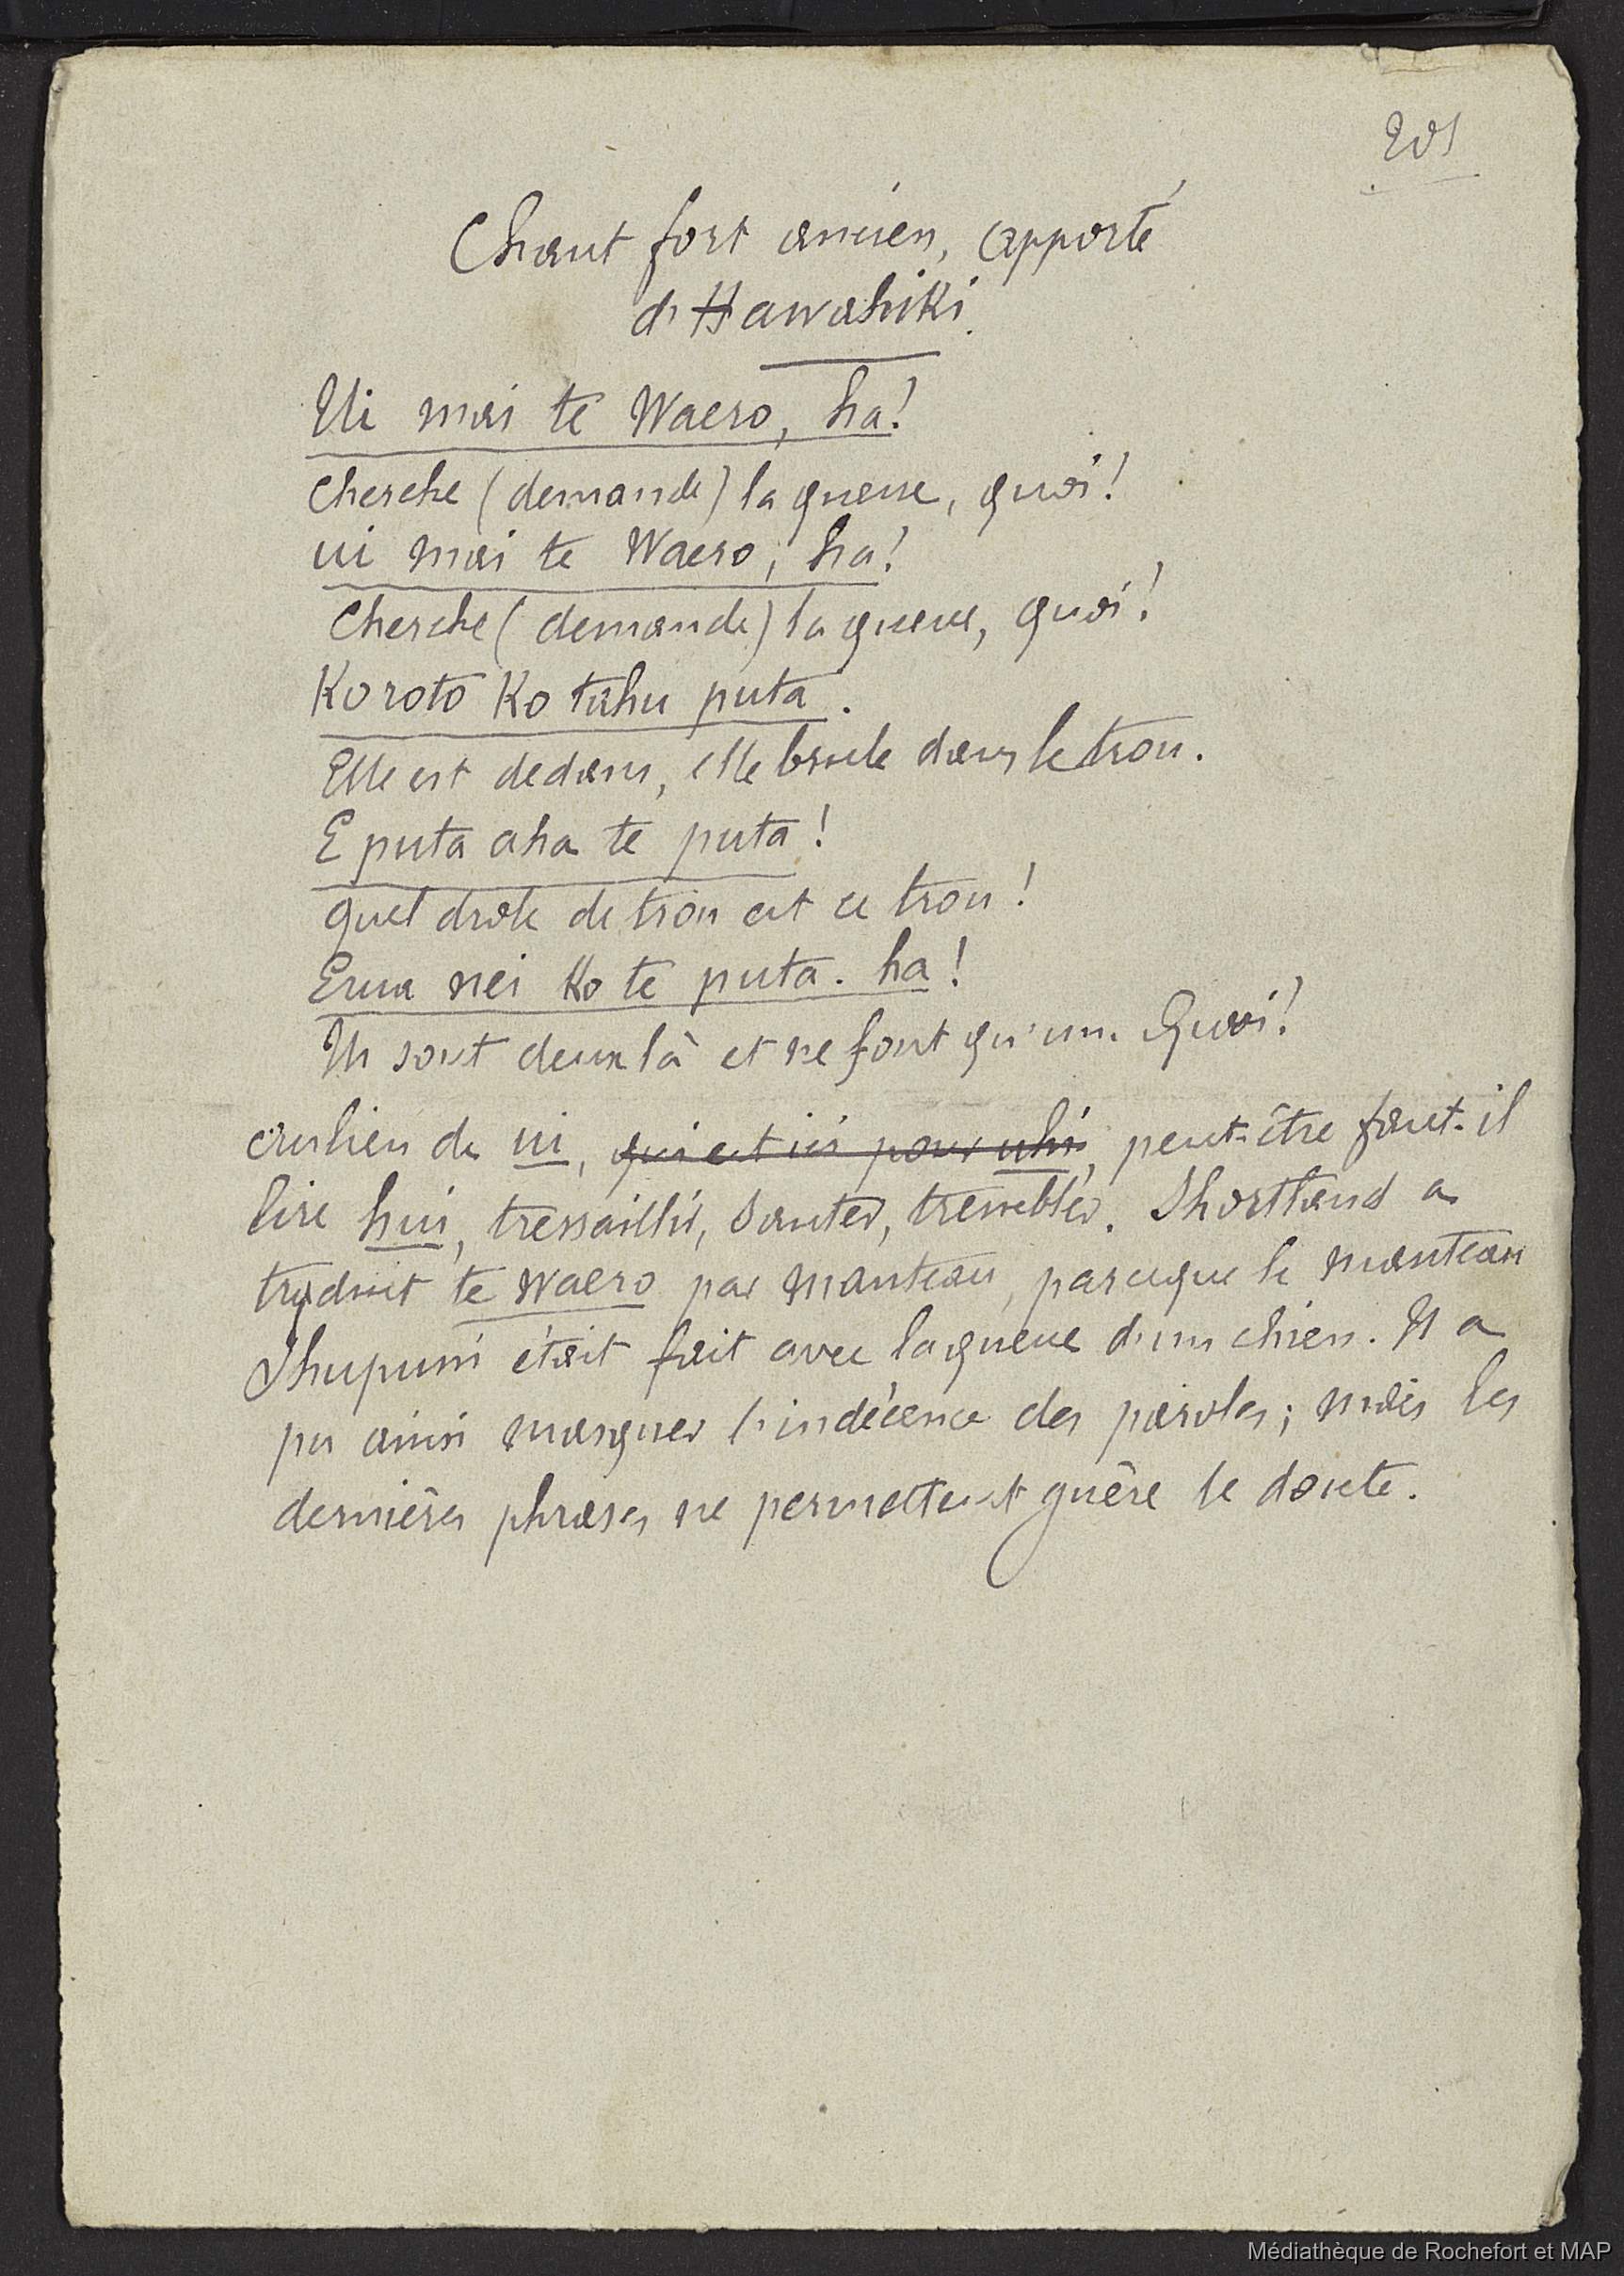 201
Chant fort ancien, apporté
d'Hawahiki.
Ui mai te Waero, ha!
Cherche (demande) la queue, quoi!
ui mai te Waero, ha!
Cherche (demande) la queue, quoi!
Koroto Ko tahu puta.
Elle est dedans, elle brule dans le trou.
E puta aha te puta!
quel drole de trou est ce trou!
Erua nei Ko te puta. ha!
Ils sont deux là et ne font qu'un. Quoi!
au lieu de ui, qui est ici pour uhi, peut-être faut-il
lire hui, tressaillir, sauter, trembler. Shortland a
traduit te waero par manteau, parceque le manteau
Ihupuni était fait avec la queue d'un chien. Il a
pu ainsi masquer l'indécence des paroles; mais les
dernières phrases ne permettent guère le doute.
Médiathèque de Rochefort et MAP